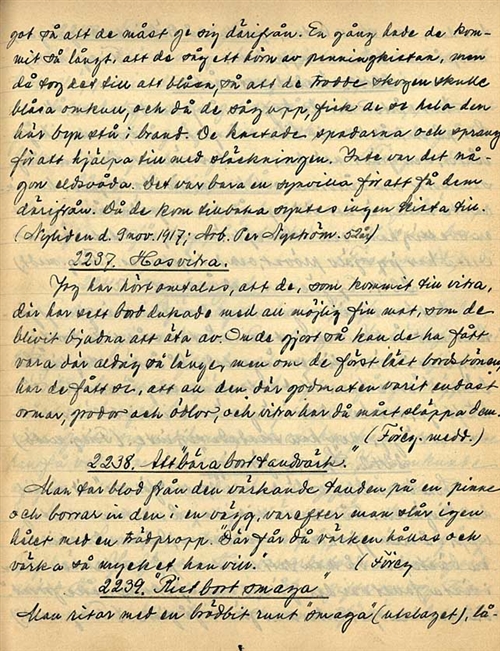 got så att de måst ge sig därifrån. En gång hade de kom-
mit så långt, att de såg ett hörn av penningkistan, men
då tog det till att blåsa, så att de trodde skogen skulle
blåsa omkull, och då de såg upp, fick de se hela den
här byn stå i brand. De kastade spadarna och sprang
för att hjälpa till med släckningen. Inte var det nå-
gon eldsvåda. Det var bara en synvilla för att få dem
därifrån. Då de kom tillbaka syntes ingen kista till.
(Nyliden d. 9 nov. 1917; Arb. Per Nyström. 52 år)
2237. Hos vitra.
Jag har hört omtalas, att de, som kommit till vitra,
där har sett bord dukade med all möjlig fin mat, som de
blivit bjudna att äta av. Om de gjort så kan de ha fått
vara där aldrig så länge, men om de först läst bordsbönen,
har de fått se, att all den där godmaten varit endast
ormar, grodor och ödlor, och vitra har då måst släppa dem.
(Föreg. medd.)
2238. Att "bära bort tandvärk."
Man tar blod från den värkande tanden på en pinne
och borrar in den i en vägg, varefter man slår igen
hålet med en trädpropp. Där får då värken hållas och
värka så mycket han vill. (Föreg
2239. "Rist bort smaga"
Man ritar med en brödbit runt "smaga" (utslaget), lå-